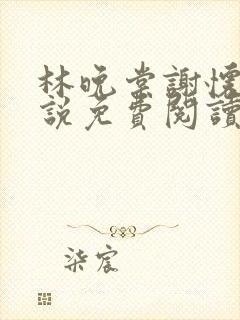 林晚棠謝懷
說免費閱讀
柒宸